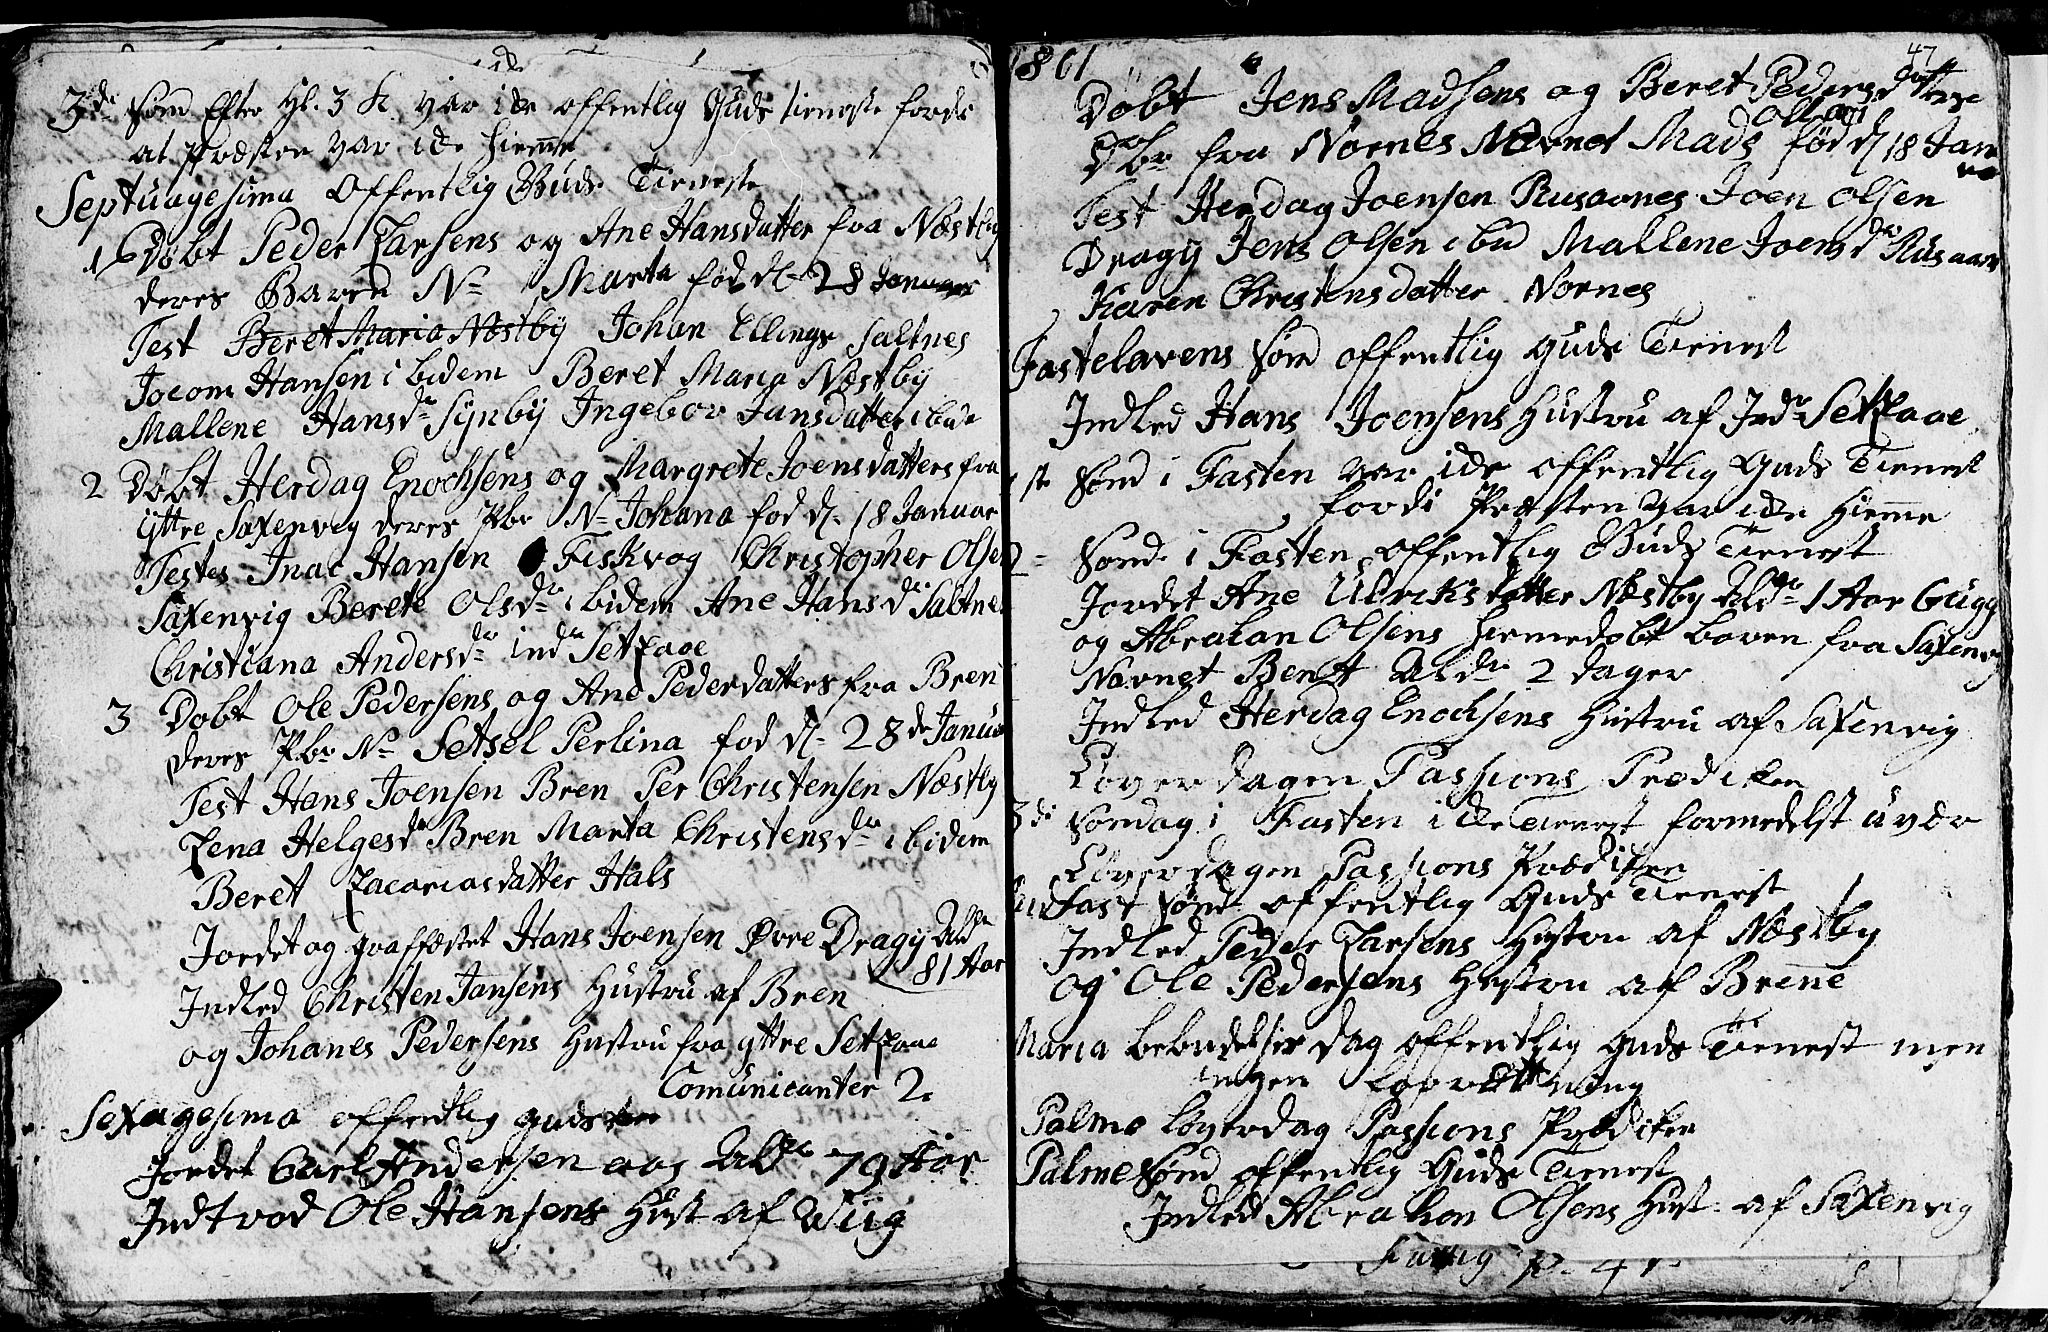 3de Sønd Efter Hl. 3 K. var ide offentlig Guds tieneste fordi
at Præsten var ide hiemme
Septuagesima Offentlig Guds Tieneste
1 Døbt Peder Larsens og Ane Hansdatter fra Næstby
deres Baren N= Marta fød dl= 28 Januar
Test Beret Maria Næstby Johan Ellings Saltnes
Jocom Hansen ibidem Beret Maria Næstby
Mallene Hansdr Synby Ingebor Jansdatter ibide
2 Døbt Herdag Enochsens og Margrete Joensdatters fra
Yttre Saxenvig deres Pbr N= Johana fød dl= 18 Januar
Testes Inac Hansen Fiskvog Christopher Olsen
Saxenvig Berete Olsdr ibidem Ane Hansdr Saltnes
Christiana Andersdr indr Setzaae
3 Døbt Ole Pedersens og Ane Pederdatters fra Bren
deres Pbr N= Setsel Perlina fød dl= 28de Januar
Test Hans Joensen Bren Per Christensen Næstby
Lena Helgesdr Bren Marta Christensdr ibidem
Beret Zacariasdatter Hals
Jordet og graffæstet Hans Joensen Øvre Dragy Aldr
81 Aar
Indled Christen Jansens Hustru af Bren
og Johanes Pedersens Hustru fra yttre Setzaae
Comunicanter 2.
Sexagesima offentlig guds
Jordet Carl Andersen aas Aldr 79 Aar
Indtrod Ole Hansens Hust af Wiig
1801
47
Døbt Jens Madsens og Beret Pedersdatters
Pbr fra Nornes Navnet Mads fød dl 18 Janu
Test Herdag Joensen Rusaanes Joen Olsen
Dragy Jens Olsen ibid Mallene Joensdr Rusaan
Karen Christensdatter Nornes
Fastelavens Sønd offentlig guds Tienest
Indled Hans Joensens Hustru af Indr Setzaae
1ste Sønd i Fasten var ide offentlig Guds Tienest
fordi Præsten var ide hiemme
2= Sønd i Fasten offentlig Guds Tienest
Jordet Ane Ulrcksdatter Næstby Aldr 1 Aar 6 ugg
og Abrahan Olsens hiemedøbt baren fra Saxenvig
Navnet Bent Aldr 2 dager
Indled Herdag Enochsens Hustru af Saxenvig
Løverdagen Passions Prædicken
3de Søndag i Fasten ide Tienest formedelst uvær
Løverdagen Passions Prædiken
Midfast Sønd offentlig Guds Tienest
Indled Peder Larsens Hustru af Næstby
og Ole Pedersens Hustru af Brene
Maria bebudelses Dag offentlig guds Tienest men
ingen
Palme løverdag Passions Prædiken
Palme Sønd offentlig Guds Tienest
Indled Abrahan Olsens Hust= af Saxenvig